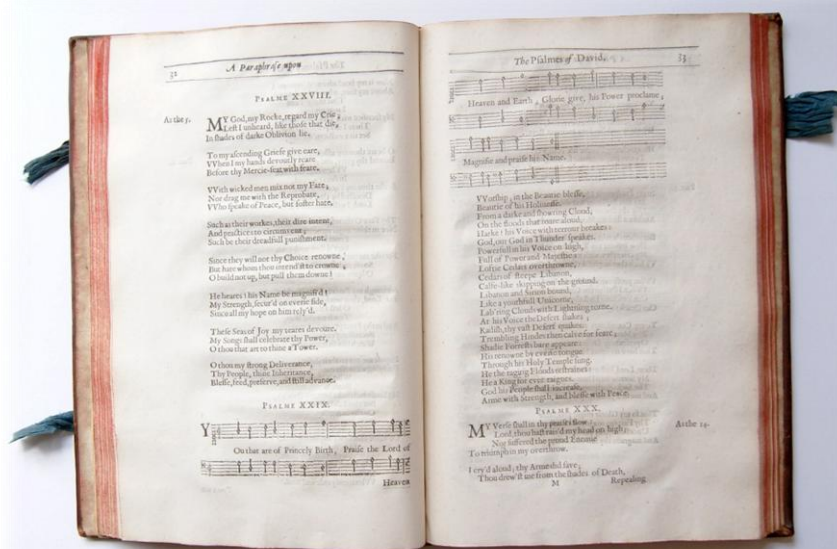 32
A Paraphrase upon
PSALME XXVIII.
As the 5.
MY God, my Rocke, regard my Crie;
Lest I unheard, like those that die,
In shades of darke Oblivion lie.
To my ascending Griefe give eare,
VVhen I my hands devoutly reare
Before thy Mercie-seat with feare.
VVith wicked men mix not my Fate,
Nor drag me with the Reprobate,
VVho speake of Peace, but foster hate.
Such as their workes, their dire intent,
And practices to circumvent;
Such be their dreadfull punishment.
Since they will not thy Choice renowne,
But hate whom thou to crowne;
O build not up, but pull them downe!
He heares! his Name be magnifi'd!
My Strength, secur'd on everie side,
Since all my hope on him rely'd.
These Seas of Joy my teares devoure.
My Songs shall celebrate thy Power,
O thou that art to thine a Tower.
O thou my strong Deliverance,
Thy People, thine Inheritance,
Blesse, feed, preserve, and still advance.
PSALME XXIX.
YOu that are of Princely Birth, Praise the Lord of
Heaven
The Psalmes of David.
33
Heaven and Earth, Glorie give, his Power proclame,
Magnifie and praise his Name.
VVorship, in the Beautie blesse,
Beautie of his Holinesse.
From a darke and showring Cloud,
On the floods that roare aloud,
Harke! his Voice with terror breakes:
God, our God in Thunder speakes.
Powerfull in his Voice on high,
Full of Power and Majestie:
Loftie Cedars overthrowne,
Cedars of steepe Libanon,
Calfe-like skipping on the ground.
Libanon and Sirion bound,
Like a youthfull Unicorne,
Lab'ring Clouds with Lightening torne.
At his Voice the Desert shakes;
Kadish, thy vast Desert quakes.
Trembling Hindes then calve for feare;
Shadie Forrests bare appeare:
His renowne by everie tongue
Through his Holy Temple sung.
He the raging Floods restraines:
He a King for ever raignes.
God his People shall increase,
Arme with Strength, and blesse with Peace.
PSALME XXX.
MY Verse shall in thy praises flow:
Lord, thou hast rais'd my head on high;
Nor suffered the proud Enemie
To triumph in my overthrow.
As the 14.
I cry'd aloud; thy Arme did save;
Thou drew'st me from the shades of Death,
M
Repealing